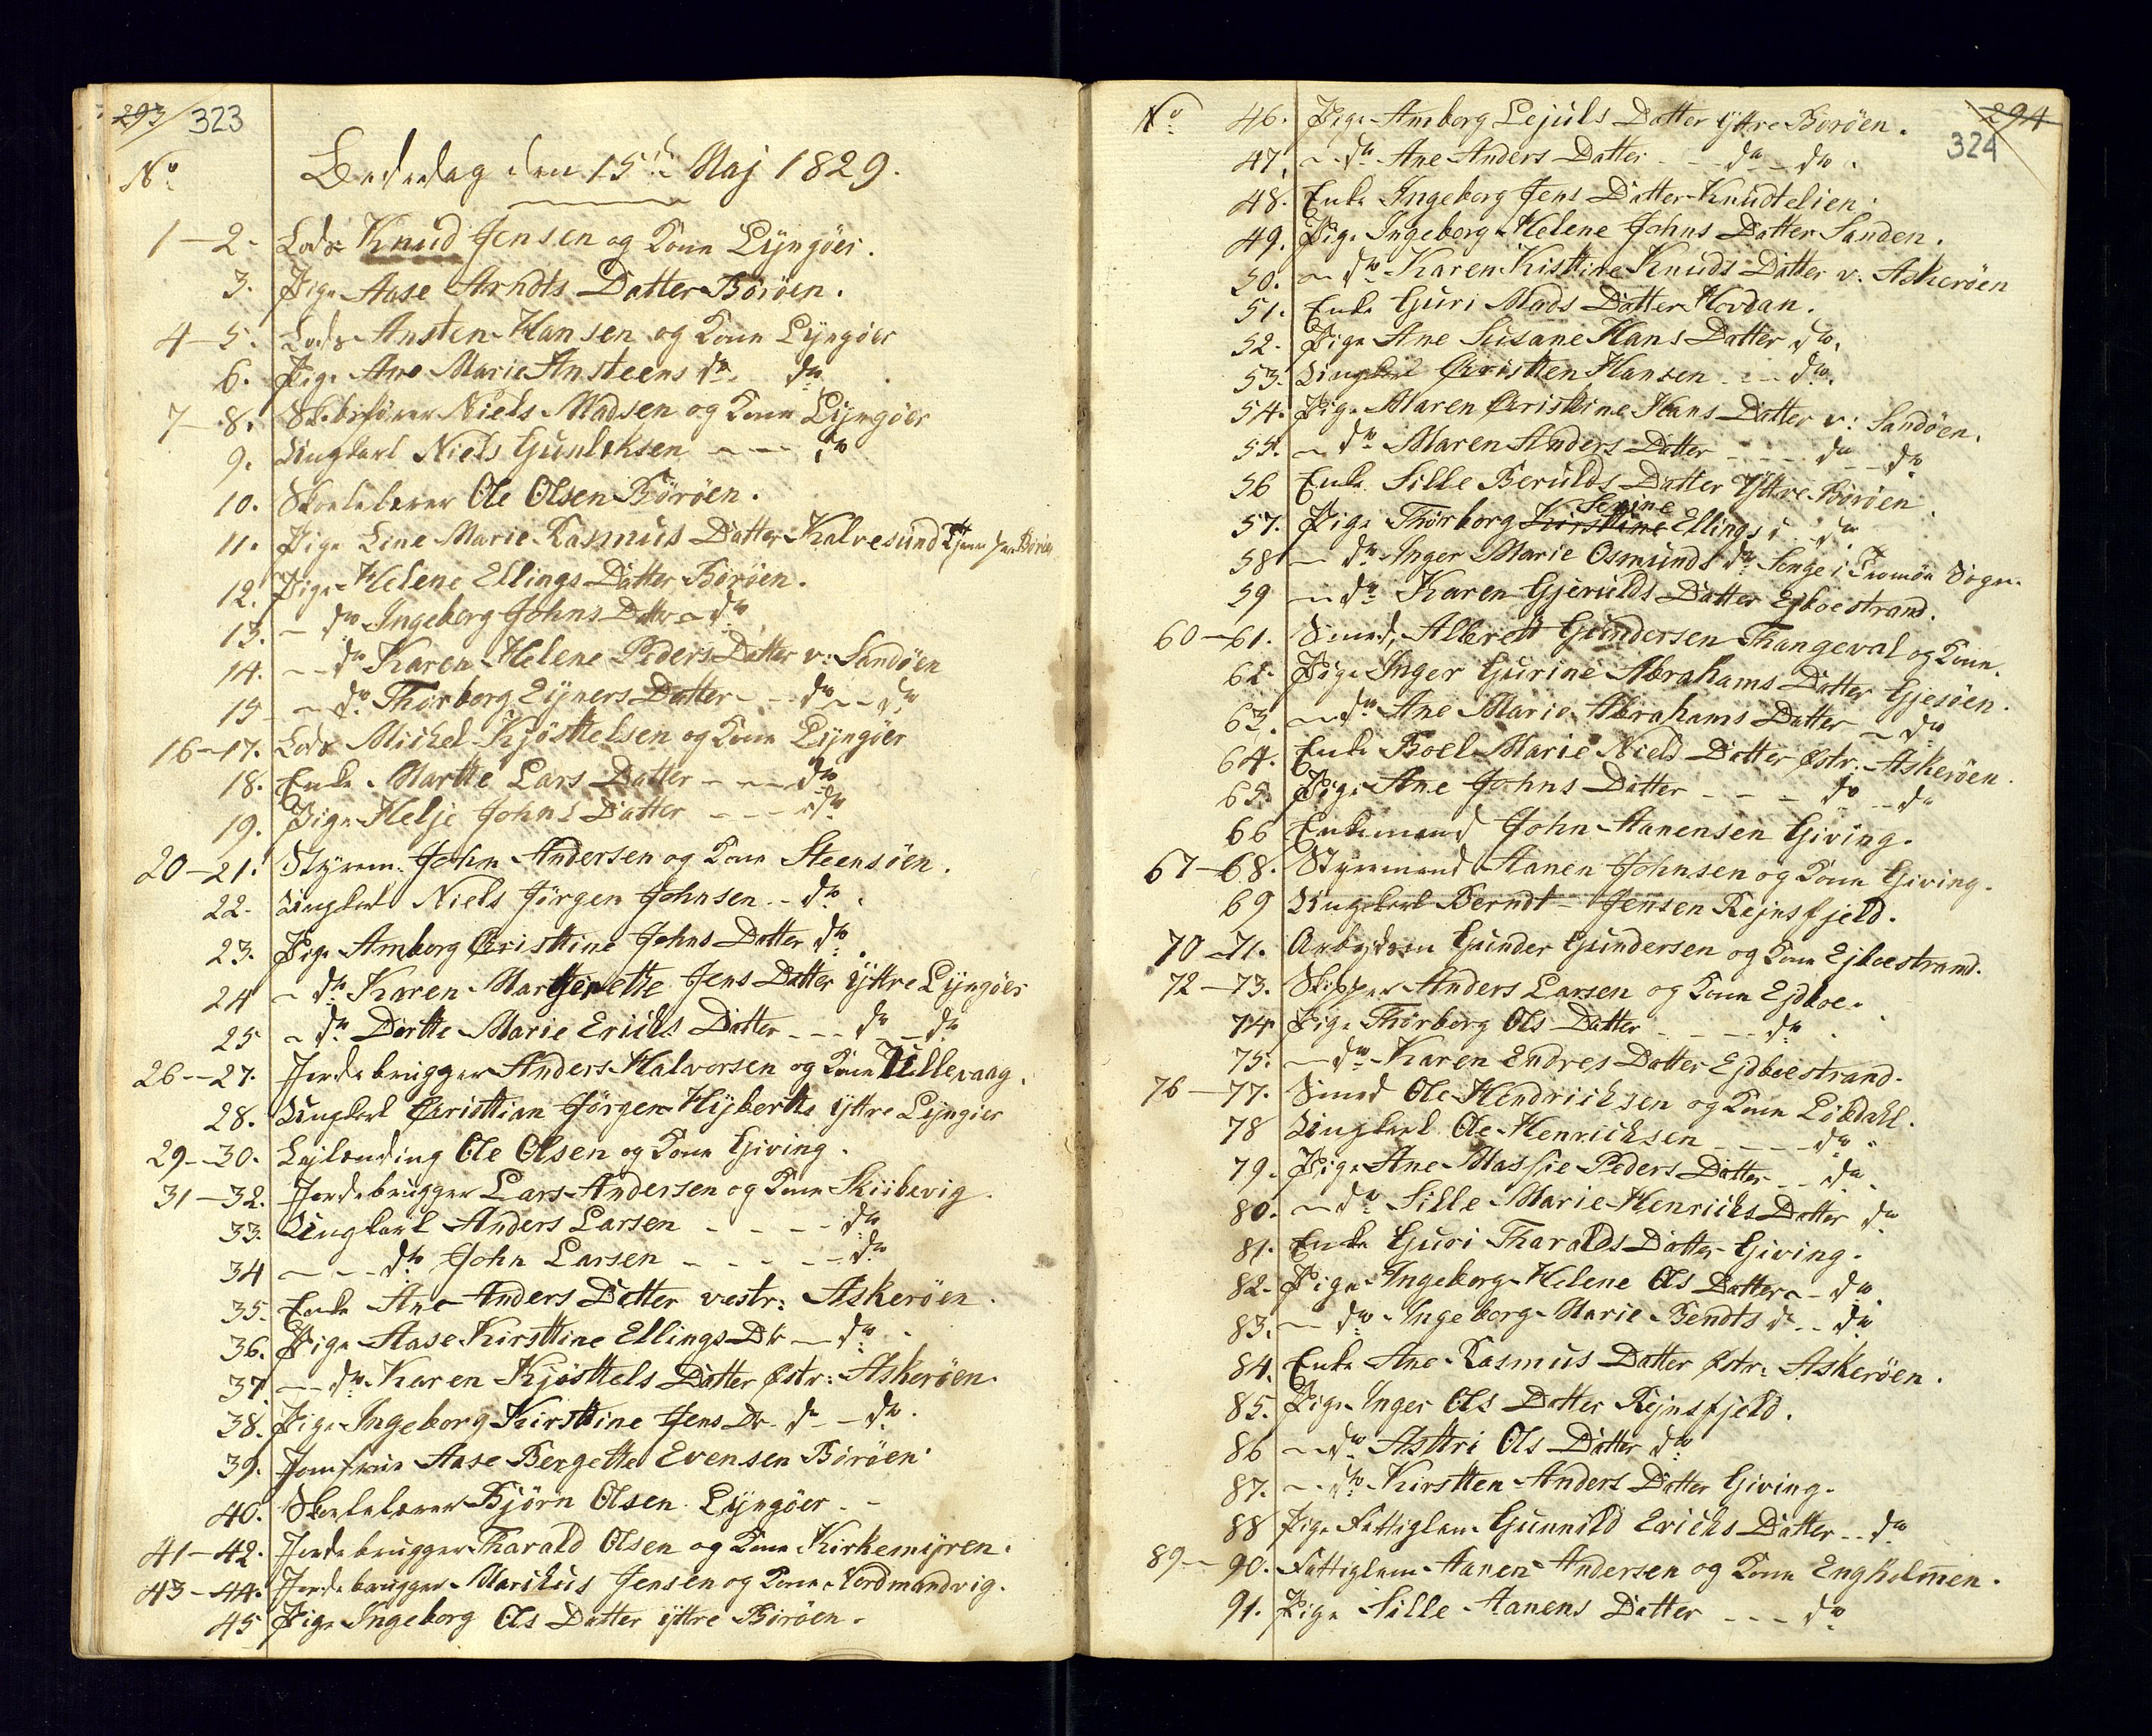 293/ 323
No
Bededag den 15de Maj 1829.
1-2. Lods Knud Jensen og Kone Lyngöer.
3. Pige Aase Arndts Datter Boröen.
4-5. Lods Ansten Hansen og Kone Lyngöer
6. Pige Ane Marie Ansteens do. do
7-8. Skibsfører Niels Madsen og Kone Lyngöer
9. Ungkarl Niels Gunleksen --- do
10. Skolelærer Ole Olsen Böröen.
11. Pige Line Marie Rasmus Datter Kalvesund
12. Pige Helene Ellings Datter Böröen.
13. - do Ingeborg Johns Datter - do
14. -- do Karen Helene Peders Datter v: Sandöen
15 - do Thorborg Eyners Datter -- do -- do
16-17. Lods Michel Kjösttelsen og Kone Lyngöer
18. Enke Marthe Lars Datter --- do
19. Pige Helje Johns Datter --- do
20-21. Styrm. John Andersen og Kone Steensöen.
22. Ungkarl Niels Jörgen Johnsen -- do.
23. Pige Amborg Cristtine Johns Datter do.
24 - do Karen Marthenette Jens Datter yttre Lyngöer
25 - do Dorthe Marie Erichs Datter --- do -- do
26--27. Jordebrugger Anders Halvorsen og Kone Ullevaag.
28. Ungkarl Cristtian Jörgen Hyberths yttre Lyngöer
29--30. Lejlænding Ole Olsen og Kone Giving.
31-32. Jordebrugger Lars Andersen og Kone Skiibevig.
33. Ungkarl Anders Larsen ---- do
34 --- do John Larsen ----- do
35. Enke Ane Anders Datter vestr: Askeröen.
36. Pige Aase Kirsttine Ellings Dtr - do.
37 -- do Karen Kjösttels Datter östr: Askeröen.
38. Pige Ingeborg Kirsttine Jens Dtr do - do.
39. Jomfrue Aase Bergette Evensen Böröen
40. Skolelærer Björn Olsen Lyngöer --
41-42. Jordebrugger Tharald Olsen og Kone Kirkemyren.
43-44. Jordebrugger Marikus Jensen og Kone Nordmandvig.
45 Pige Ingeborg Ols Datter yttre Böröen.
294
324
No 46. Pige Amborg Lejuls Datter yttre Boröen.
47. -- do Ane Anders Datter --- do -- do.
48. Enke Ingeborg Jens Datter Knudtelien.
49. Pige Ingeborg Helene Johns Datter Sanden.
50. - do Karen Kisttine Knuds Datter v: Askeröen
51. Enke Guri Mads Datter Hovdan.
52. Pige Ane Susane Hans Datter do.
53. Ungkarl Cristten Hansen --- do.
54. Pige Maren Cristtine Hans Datter v: Sandöen.
55. - do Maren Anders Datter ---- do -- do
56 Enke Sille Berulds Datter Yttre Böröen
Sevine
57. Pige Thorborg Kirsttine Ellings d do
58 - do Inger Marie Osmunds do Songe i Tromöe Sogn.
59 -- do Karen Gjerulds Datter Ejboestrand.
60-61. Smed, Albrett Gundersen Thangeval og Kone.
62. Pige Inger Gurine Abrahams Datter Gjesöen.
63. -- do Ane Marie Abrahams Datter -- do
64. Enke Boel Marie Niels Datter östr: Askeröen.
65. Pige Ane Johns Datter --- do -- do
66 Enkemand John Aanensen Giving.
67-68. Styrmand Aanen Johnsen og Kone Giving.
69 Ungkarl Berndt Jensen Rejnsfjeld.
70-71. Arbejdsm Gunder Gundersen og Kone Ejboestrand.
72-73. Skipper Anders Larsen og Kone Ejdboe.
74. Pige Thorborg Ols Datter ---- do.
75. -- do Karen Endres Datter Ejdboestrand.
76-77. Smed Ole Hendrichsen og Kone Lökdahl.
78 Ungkarl Ole Henrichsen ---- do.
79. Pige Ane Massie Peders Datter -- do.
80. -- do Sille Marie Henrichs Datter do
81. Enke Guri Tharalds Datter Giving.
82. Pige Ingeborg Helene Ols Datter -- do.
83. -- do Ingeborg Marie Bendts d -- do
84. Enke Ane Rasmus Datter östr: Askeröen.
85. Pige Inger Ols Datter Rejnsfjeld.
86 -- do Asttri Ols Datter do
87. -- do Kirstten Anders Datter Giving.
88 Pige Fattiglem Gunnild Erichs Datter -- do
89--90. Fattiglem Aanen Andersen og Kone Engholmen.
91. Pige Sille Aanens Datter --- do